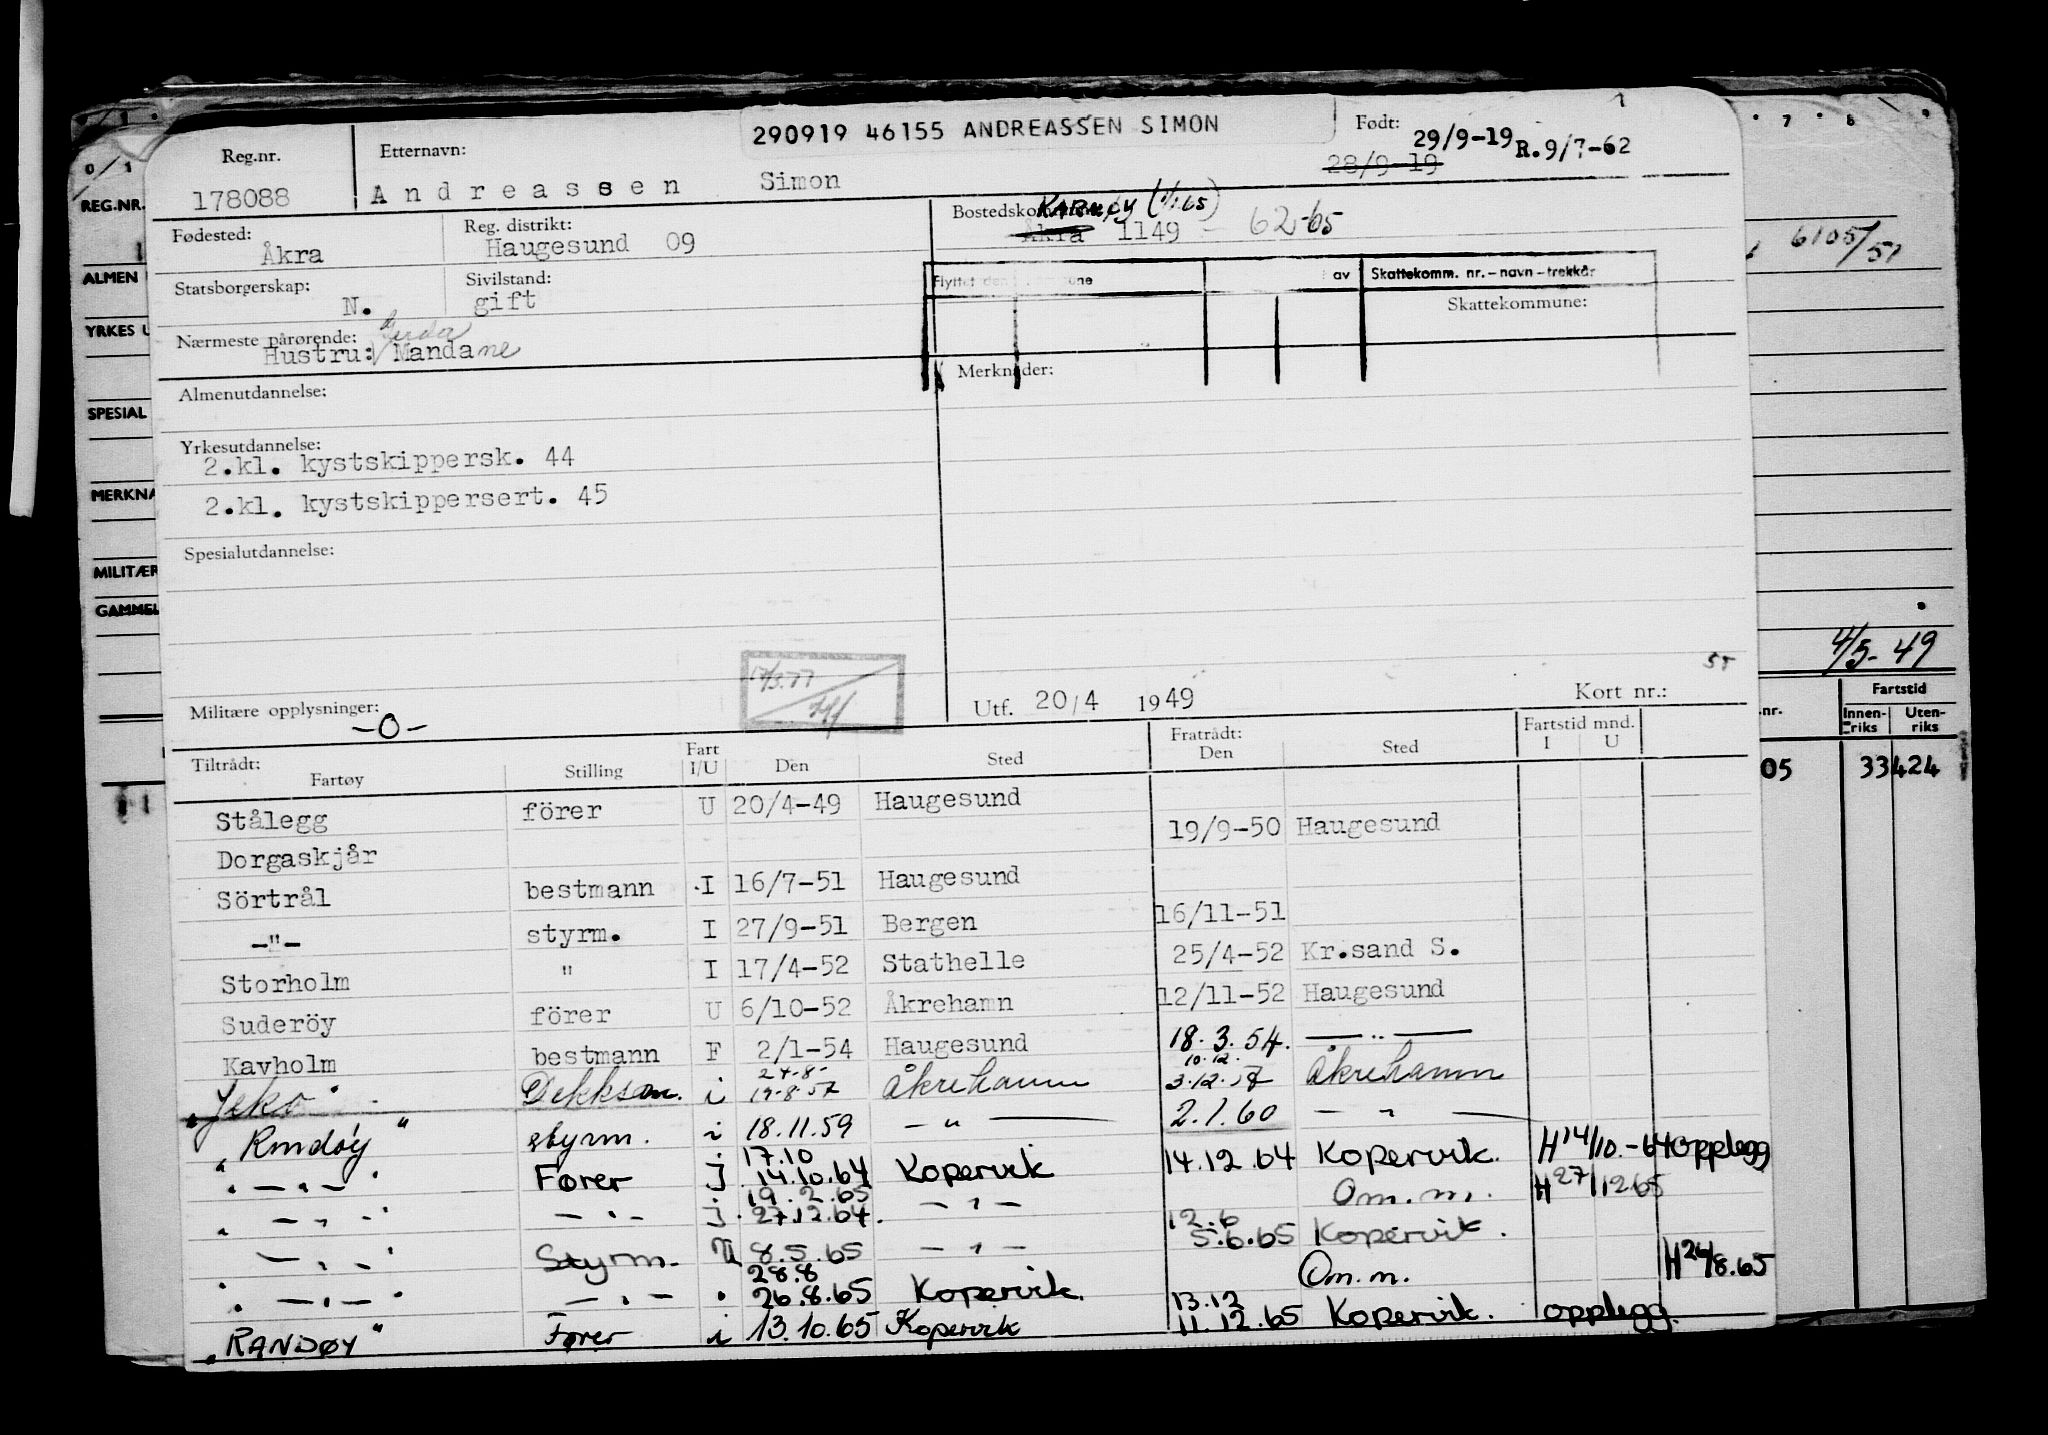 290919 46155 ANDREASSEN SIMON
Født: 29/9-19 R.9/7-62
28/9-19
Reg.nr. 178088
Etternavn: Andreassen Simon
Fødested: Åkra
Reg. distrikt: Haugesund 09
Bostedskommune: KARMØY (1/1 65)
Åkra 1149 - 62-65
Statsborgerskap: N.
Sivilstand: gift
Flyttet den une av Skattekomm. nr. - navn - trekkår
Skattekommune:
Nærmeste pårørende:
Hustru: Mandane
Merknader:
Almenutdannelse:
Yrkesutdannelse:
2.kl. kystskippersk. 44
2.kl. kystskippersert. 45
Spesialutdannelse:
Militære opplysninger: -0-
Utf. 20/4 1949
Kort nr.:
Tiltrådt: Fartøy Stilling Fart I/U Den Sted Fratrådt: Den Sted Fartstid mnd. I U
Stålegg förer U 20/4-49 Haugesund
19/9-50 Haugesund
Dorgaskjår
Sörtrål bestmann I 16/7-51 Haugesund
-"- styrm. I 27/9-51 Bergen 16/11-51
Storholm " I 17/4-52 Stathelle 25/4-52 Kr.sand S.
Suderöy förer U 6/10-52 Åkrehamn 12/11-52 Haugesund
Kavholm bestmann F 2/1-54 Haugesund 18.3.54. —"—
"Jeko" Dekksm. i 24-8- 19-8-57 Åkrehamn 10.12. 3.12.57 Åkrehamn
"Randøy" styrm. i 18.11.59 — " — 2.1.60 — " —
" — " — " Fører J 17.10 14.10.64 Kopervik 14.12.64 Kopervik. H 14/10.-64 opplegg
" — " — " — " — J. 19.2.65 27.12.64. — " — Om.m. H 27/12 65
— " — " Styrm. U 8.5.65 — " — 12.6 5.6.65 Kopervik.
" — " — " — " — " 28.8 26.8.65 Kopervik. Om.m. H 26/8.65
"RANDØY" Fører i 13.10.65 Kopervik 13.12 11.12.65 Kopervik. opplegg.
REG.NR.
ALMEN
YRKES U
SPESIAL
MERKNA
MILITÆR
GAMMEL
6105/51
4/5-49
.nr. Fartstid
Innenriks Utenriks
05 33 424